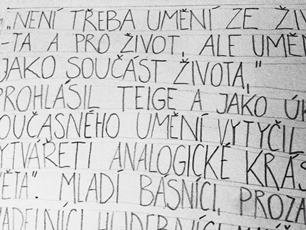 „NENÍ TŘEBA UMĚNÍ ZE ŽI
-TA A PRO ŽIVOT, ALE UMĚN
JAKO SOUČÁST ŽIVOTA,"
PROHLÁSIL TEIGE A JAKO ÚK
OUČASNÉHO UMĚNÍ VYTYČIL
YTVÁŘETI ANALOGICKÉ KRÁS
ĚTA". MLADÍ BÁSNÍCI, PROZA
ADELNÍCI HUDEBNÍCI